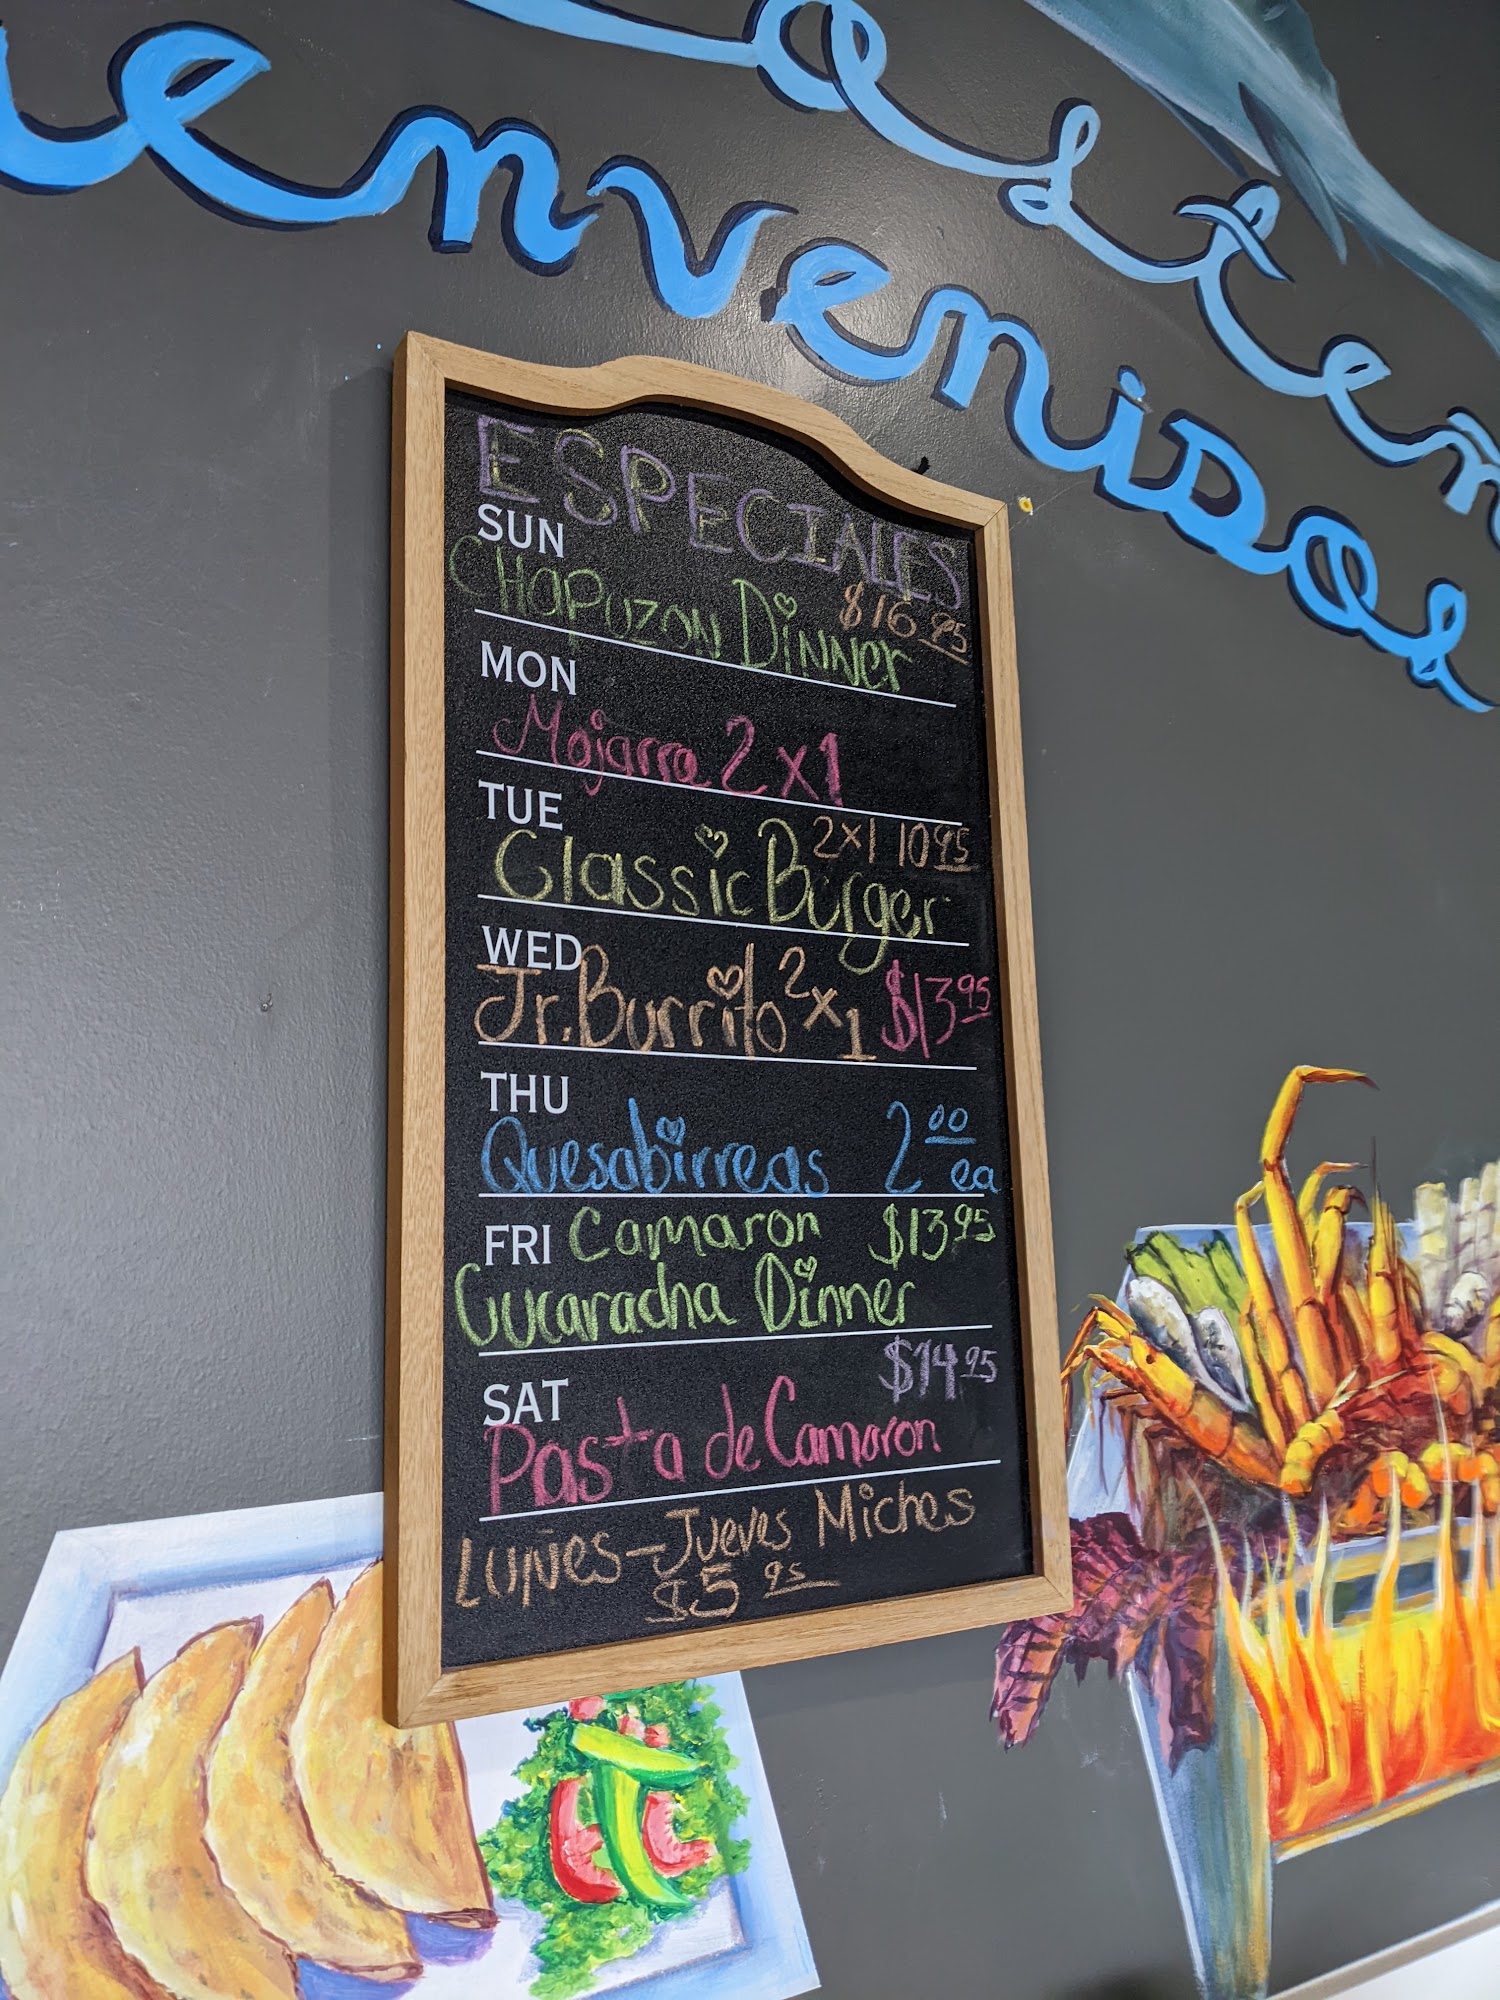 Bienvenidos
ESPECIALES
SUN
CHAPUZON Dinner $16.95
MON
Mojarra 2x1
TUE
2x1 10.95
Classic Burger
WED
Jr. Burrito 2x1 $13.95
THU
Quesabirreas 2.00 ea
FRI Camaron $13.95
Cucaracha Dinner
SAT $14.95
Pasta de Camaron
LUNES-Jueves Miches
$5.95